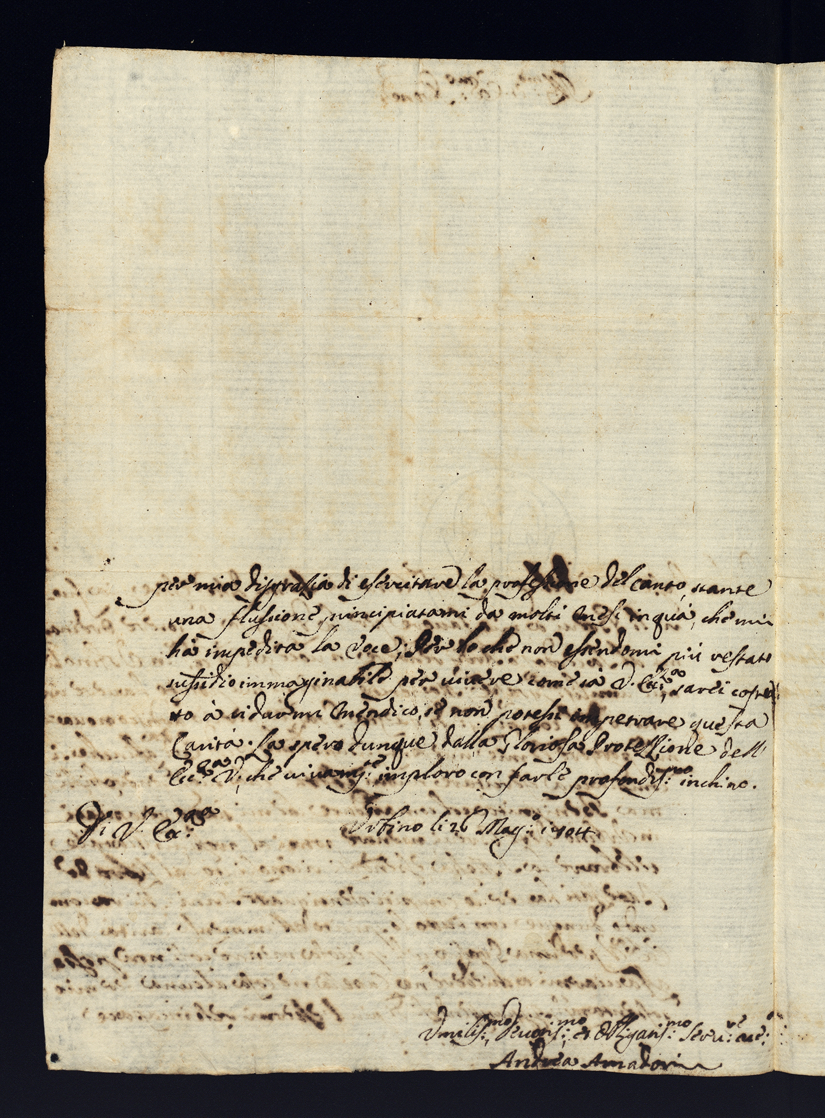 per mia disgrasia di esercitare la professione del canto, stante
una flussione, principiatami da molti Mesi in quà, che mi
hà impedita la Voce; Per lo che non essendomi più restato
sussidio immaginabile per vivere come sà V. Ecc:, sarei costret
to à ridurmi Mendico, se non potessi impetrare questa
Carità. La spero dunque dalla Gloriosa Protezzione dell'
Ecc:za V., che vivam:te imploro con farle profondis:mo inchino.
Di V. Ecc:za Urbino li 26 Mag:o 1704
Umilis:mo, Devotis:mo et Obligatis:mo Serv:re
Andrea Amadori